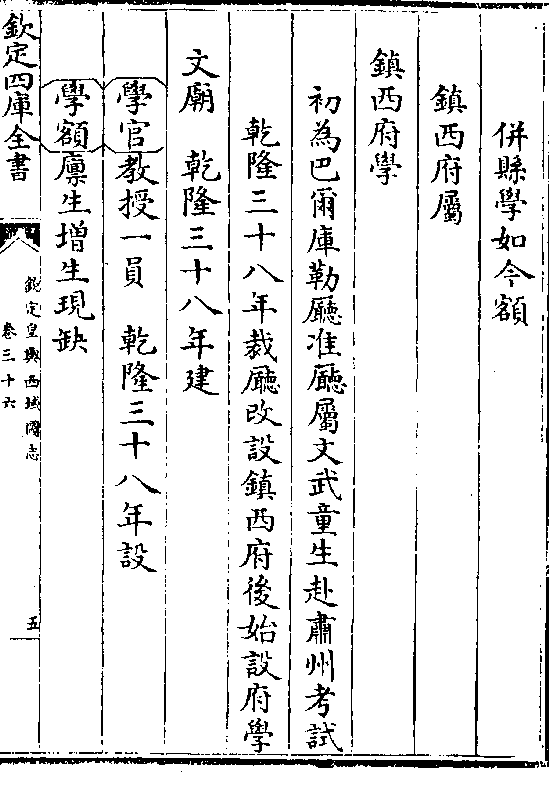 併縣學如今額
鎮西府屬
鎮西府學
初為巴爾庫勒廳准廳屬文武童生赴肅州考試
乾隆三十八年裁廳改設鎮西府後始設府學
文廟　乾隆三十八年建
學官教授一員　乾隆三十八年設
學額廩生增生現缺
欽定四庫全書
欽定皇輿西域圖志
卷三十六
五